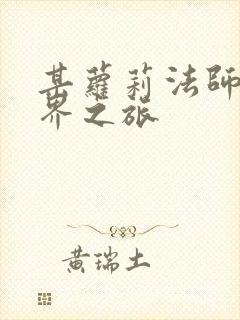 某蘿莉法師
界之旅
黃瑞土